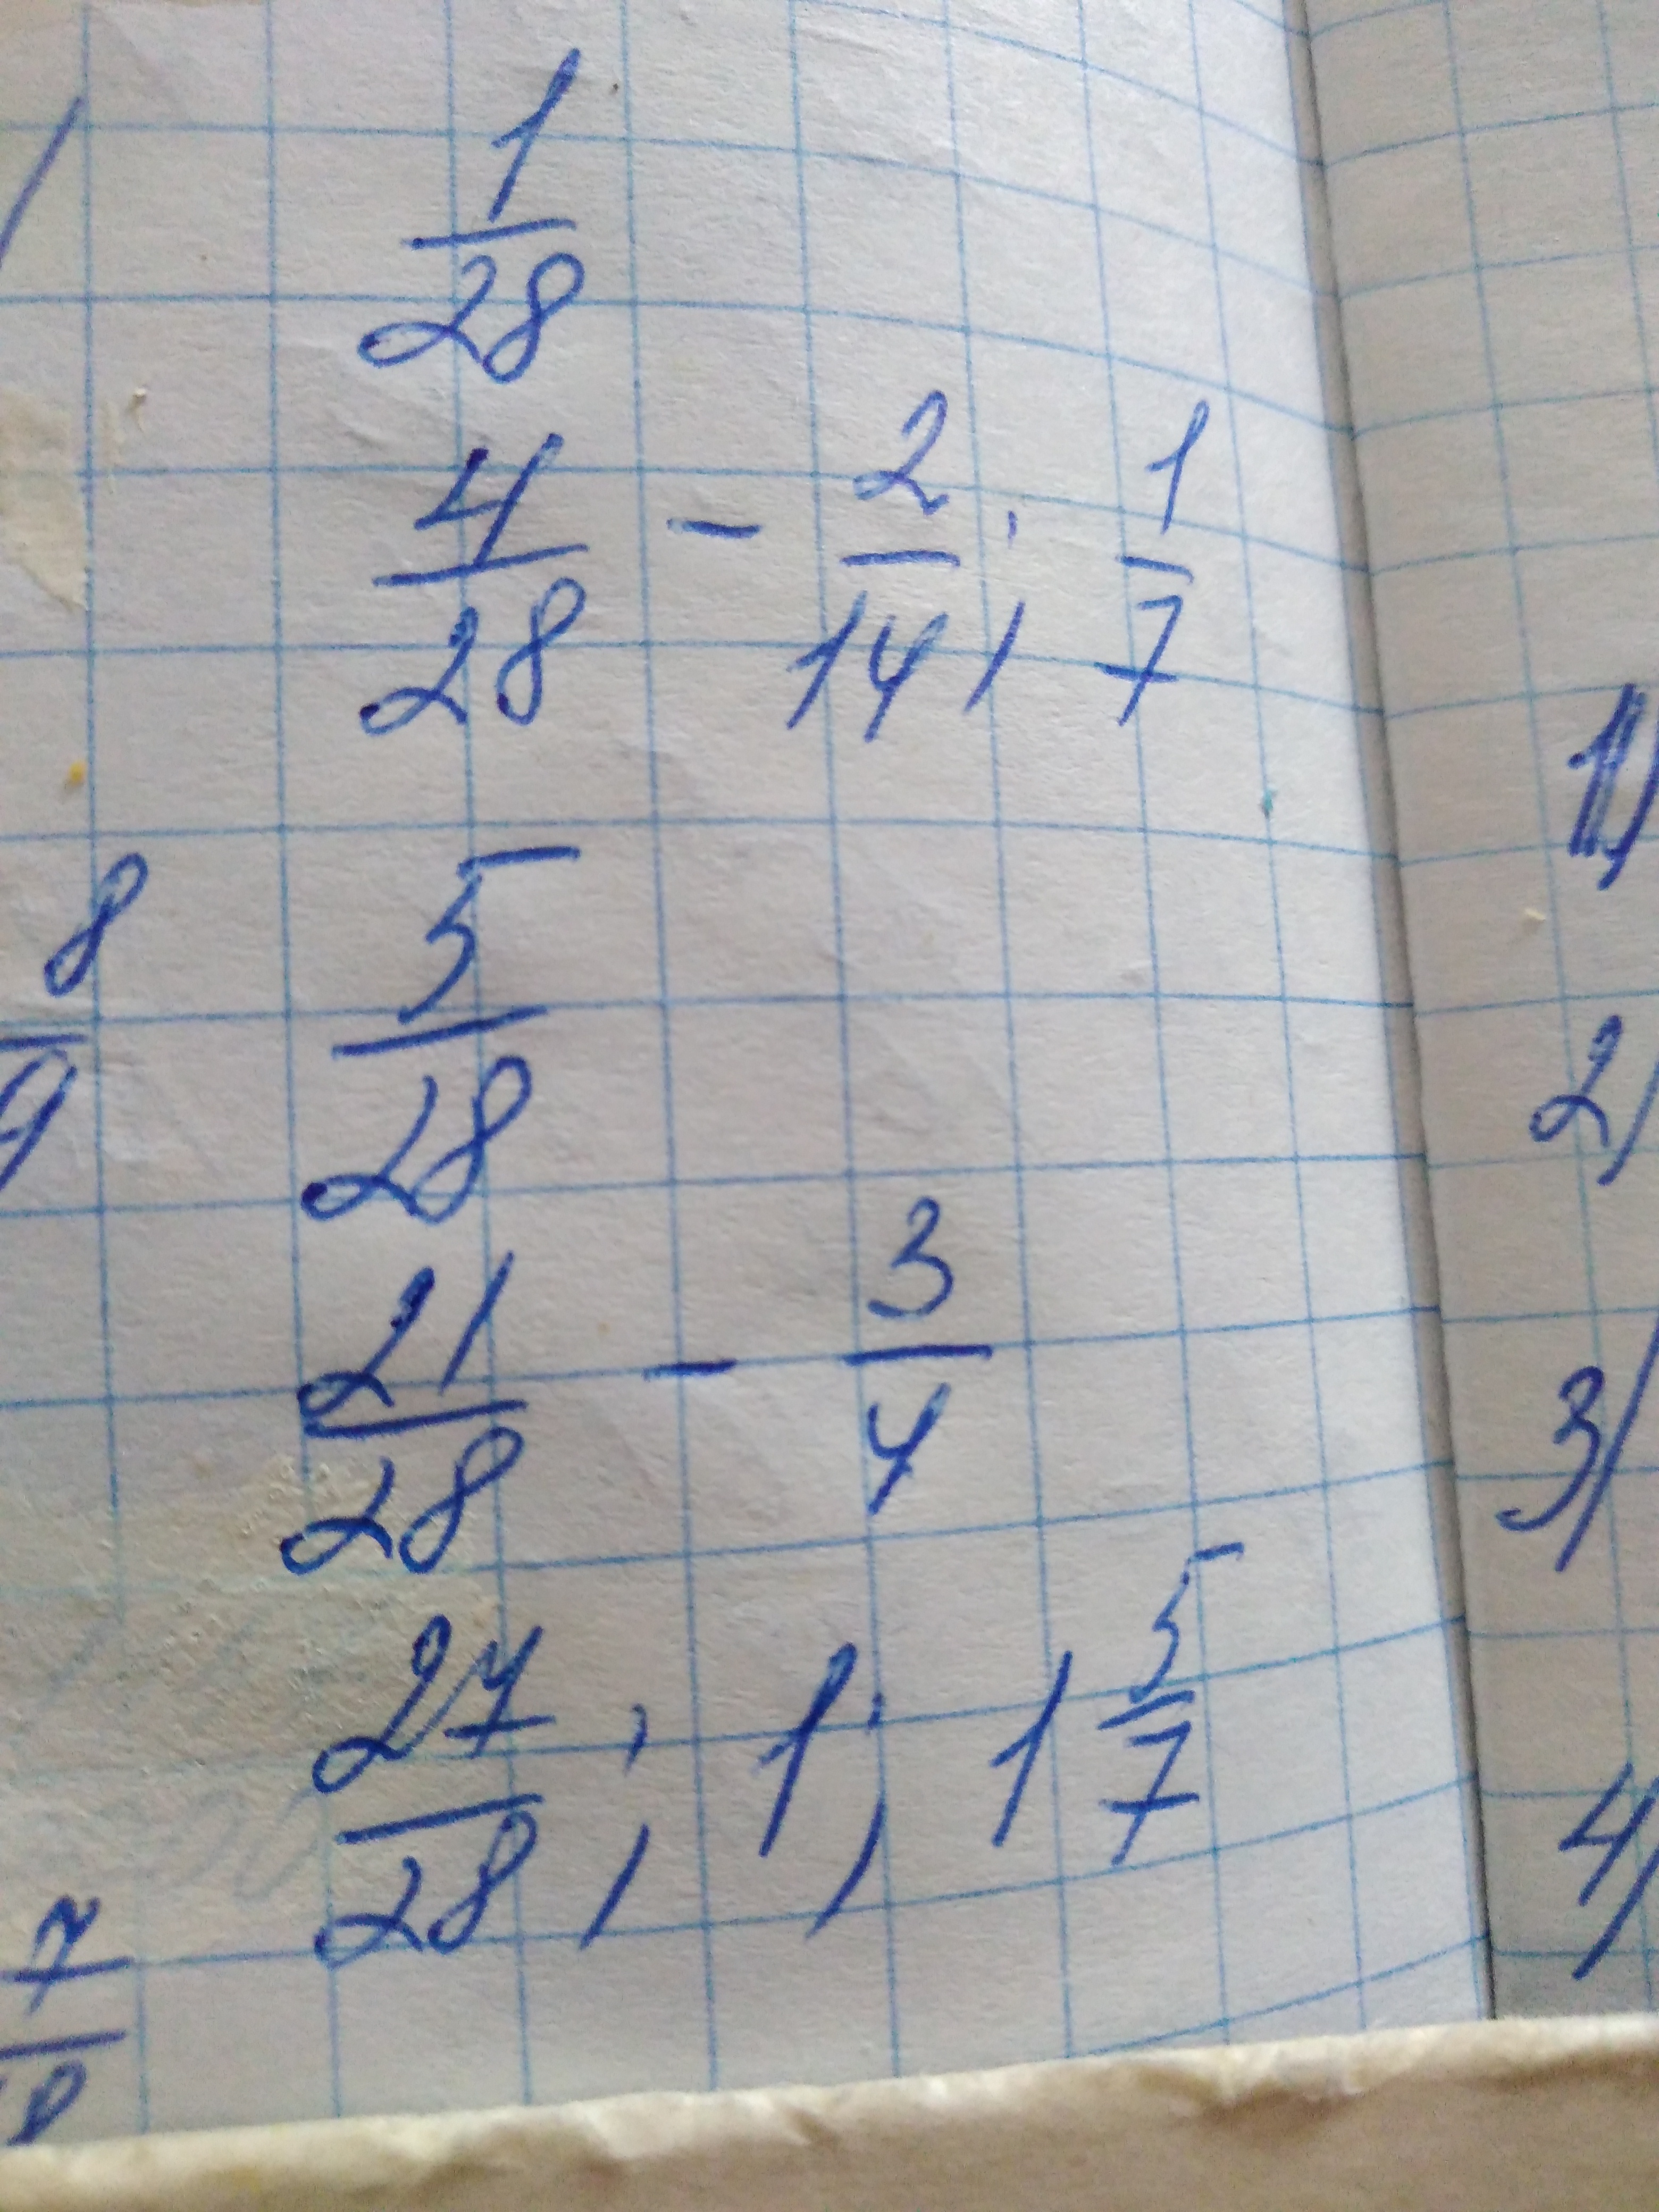 1/28
4/28 - 2/14; 1/7
5/28
21/28 - 3/4
27/28; 1; 1 5/7
8/9
7
1)
2)
3)
4)